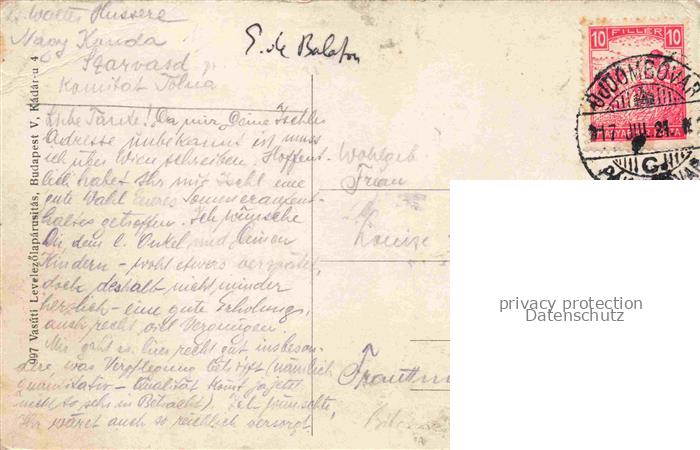 Walter Hussere
Nagy Kanda
Szarvasd
Komitat Tolna
E. de Balaton
10 FILLER 10
DOMBOVAR
917 21
Liebe Tante! Da mir Deine Ischler
Adresse unbekannt ist muss
ich über Wien schreiben. Hoffent-
lich habet Ihr mit Ischl eine
gute Wahl Eueres Sommeraufent-
haltes getroffen. Ich wünsche
Dir, dem l. Onkel und Deinen
Kindern - wohl etwas verspätet,
doch deshalb nicht minder
herzlich - eine gute Erholung,
auch recht viel Vergnügen.
Mir geht es hier recht gut, insbeson-
dere, was Verpflegung betrifft (nämlich
quantitativ - Qualität kommt ja jetzt
nicht so sehr in Betracht). Ich wünschte,
Ihr wäret auch so reichlich versorgt.
Wohlgeb
Frau
Louise
Trauttm
997 Vasúti Levelezőlapárusitás, Budapest V, Kádár-u 4
privacy protection
Datenschutz